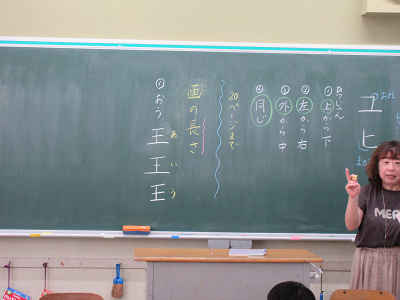 おれ
ユ
ヒ
まが
ひつじゅん
①上から下
②左から右
③外から中
④同じ
20ページまで
画の長さ
あ
い
う
①おう 王 王 王
MER